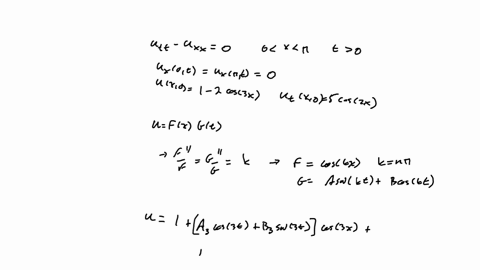 u_tt - u_xx = 0 0 < x < π t > 0
u_x(0,t) = u_x(π,t) = 0
u(x,0) = 1 - 2 cos(3x) u_t(x,0) = 5 cos(2x)
u = F(x) G(t)
→ F''/F = G''/G = k → F = cos(kx) k = nπ
G = A sin(kt) + B cos(kt)
u = 1 + [A_3 cos(3t) + B_3 sin(3t)] cos(3x) +